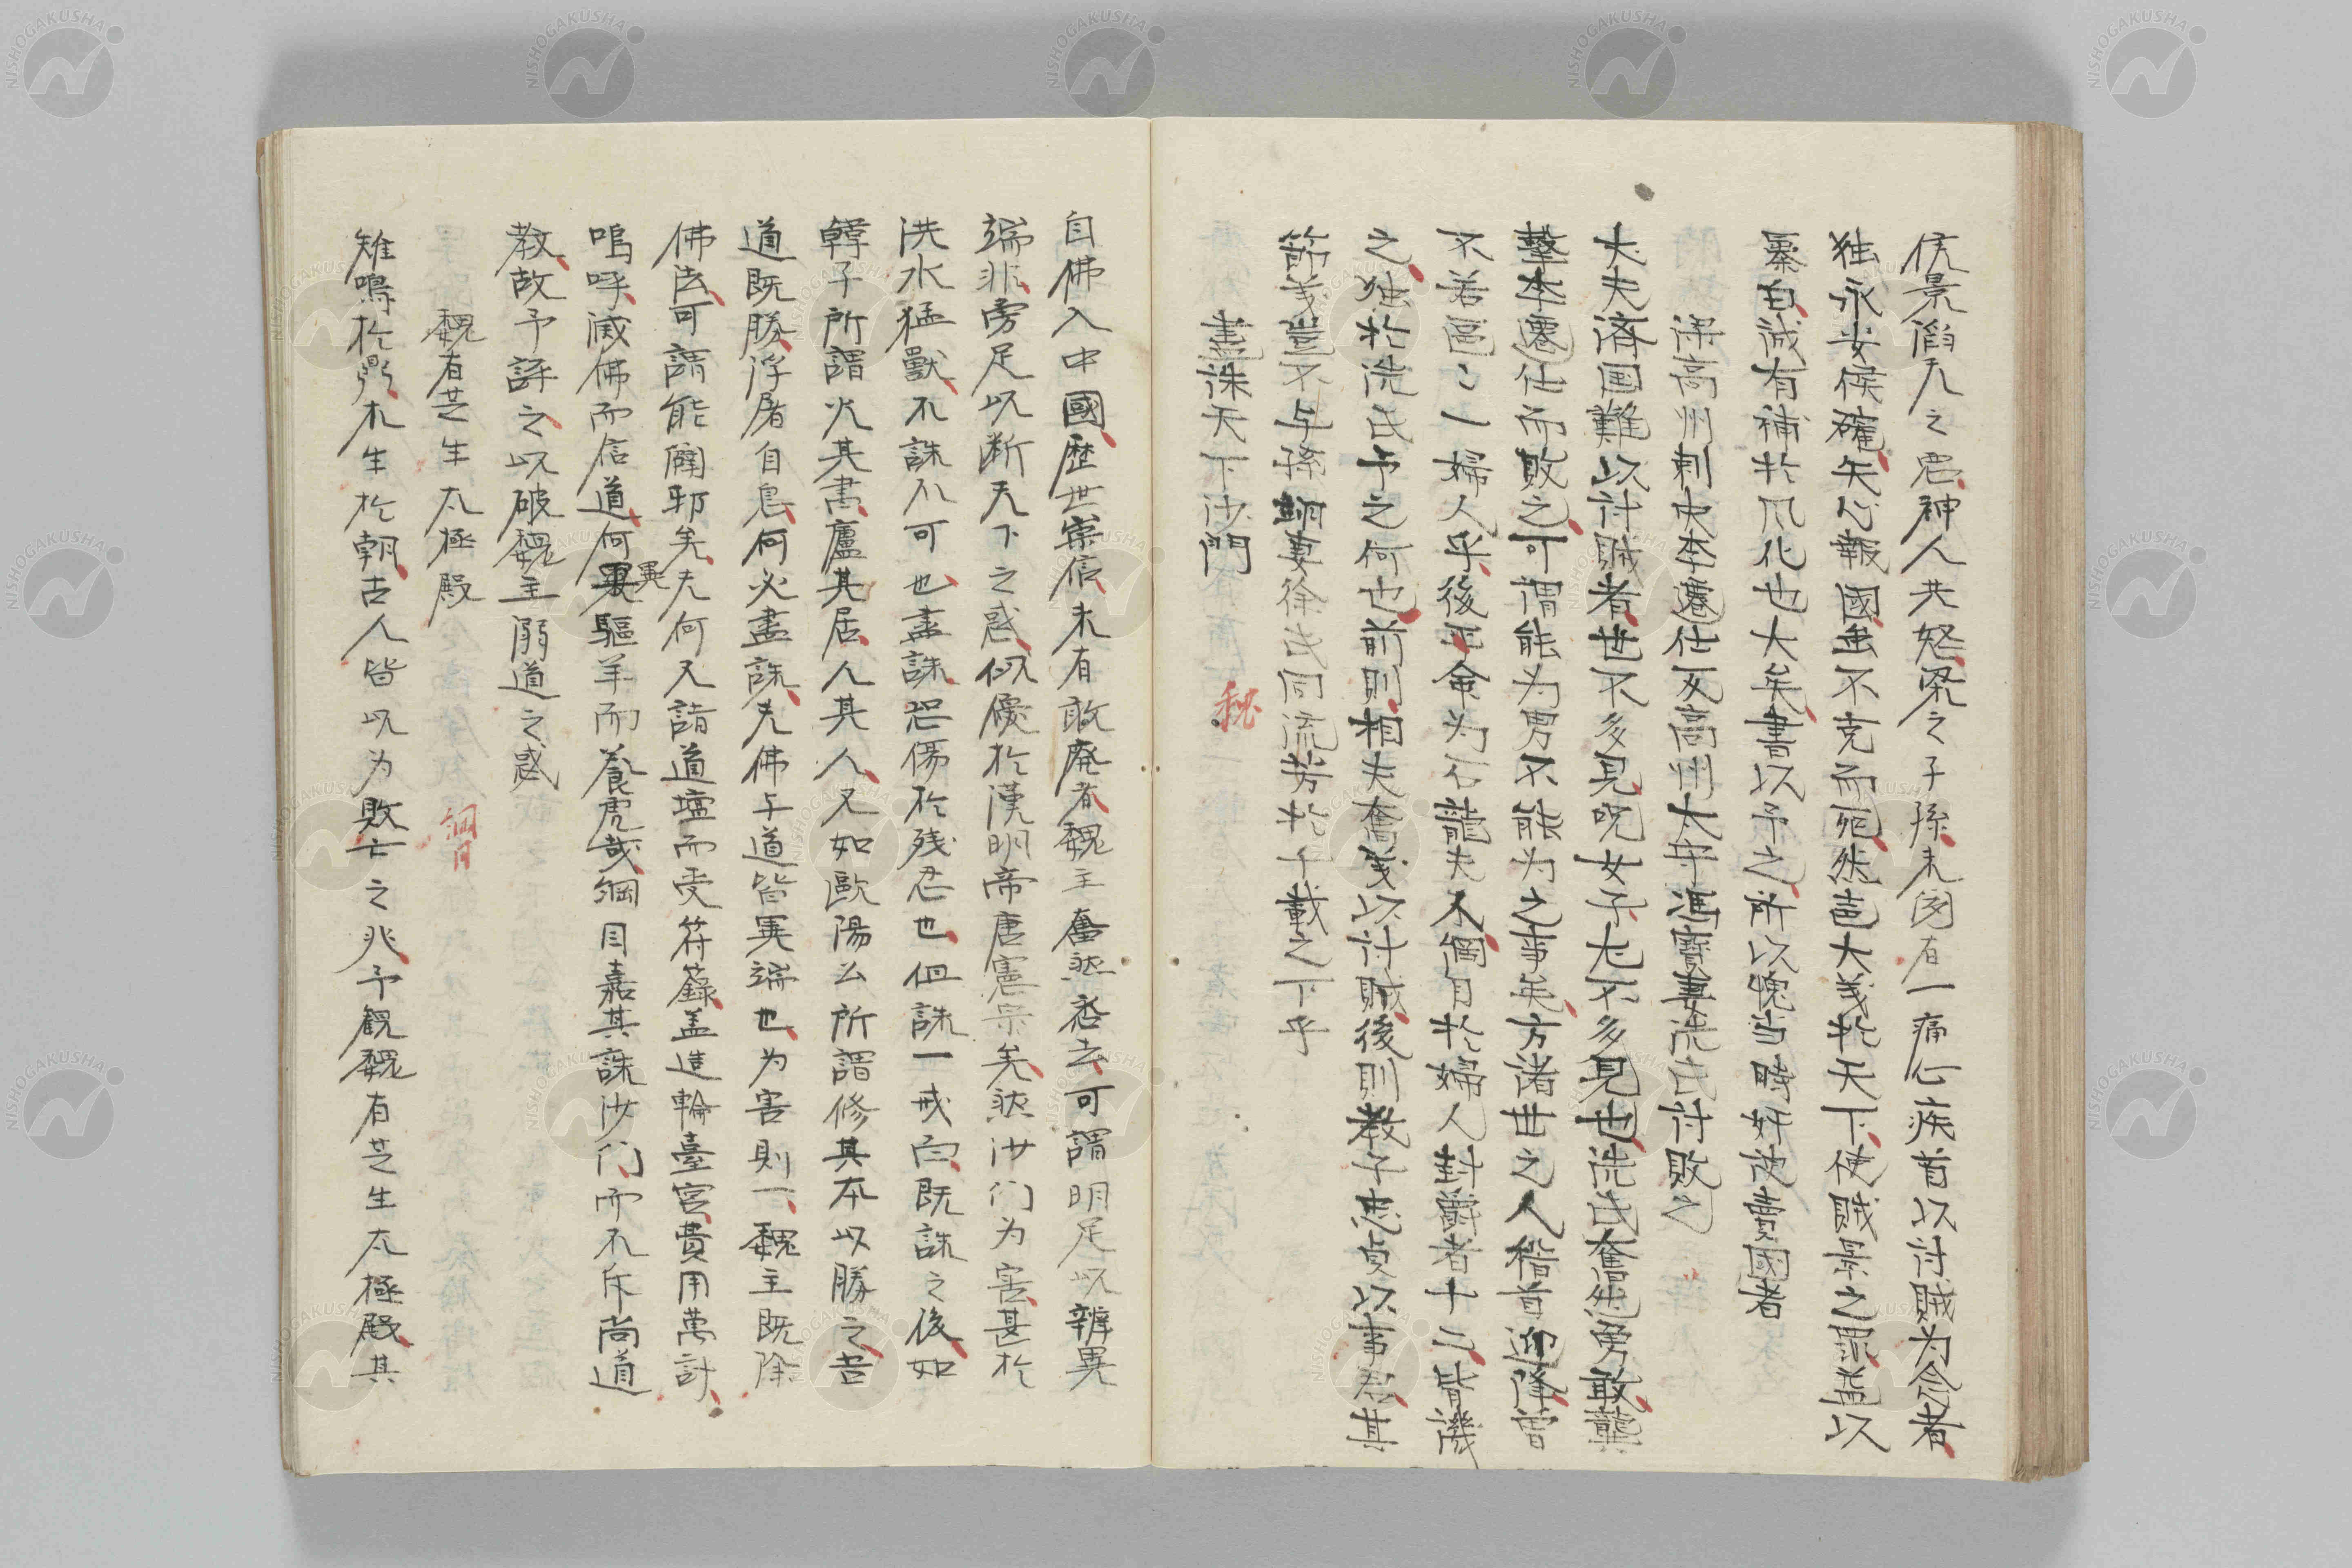 侯景傾凡之君神人共怒梁之子孫未聞有一痛心疾首以討賊为念者
独永安侯確矢心報國虽不克而死然啚大義於天下使賊景之罪益以
暴白诚有補於风化也大矣書以予之所以愧当時奸詖賣國者
梁高州刺史李遷仕反高州太守馮寳妻洗氏討敗之
大夫済囯難以討賊者世不多見况女子尤不多見也洗氏奮然勇敢龔
擊李遷仕而敗之可谓能为男不能为之事矣方诸世之人稽首迎降曽
不若區〻一婦人乎後正命为石龍夫人綱目於婦人封爵者十二皆譏
之独於洗氏予之何也前則相夫奮義以討賊後則教子忠貞以事君其
節義豈不与孫翊妻徐氏同流芳於千載之下乎
盡誅天下沙門 魏
自佛入中國歷世崇信未有敢廃者魏主奮然吝去可謂明足以辨異
端非旁足以断天下之惑似優於漢明帝唐憲宗矣然沙们为害甚於
洪水猛獸不誅不可也盡誅恐傷於残忍也但誅一戒百既誅之後如
韓子所謂火其書廬其居人其人又如歐陽公所謂修其本以勝之吾
道既勝浮屠自息何必盡誅夫佛与道皆異端也为害則一魏主既除
佛法可謂能闢邪矣夫何又詣道壇而受符籙盖造輪臺宮費用萬計
嗚呼滅佛而信道何異驅羊而養虎哉綱目嘉其誅沙们而不斥尚道
異
教故予評之以破魏主溺道之惑
魏有芝生太極殿 綱目
雉鳴於鼎木生於朝古人皆以为敗亡之兆予観魏有芝生太極殿其
NISHOGAKUSHA